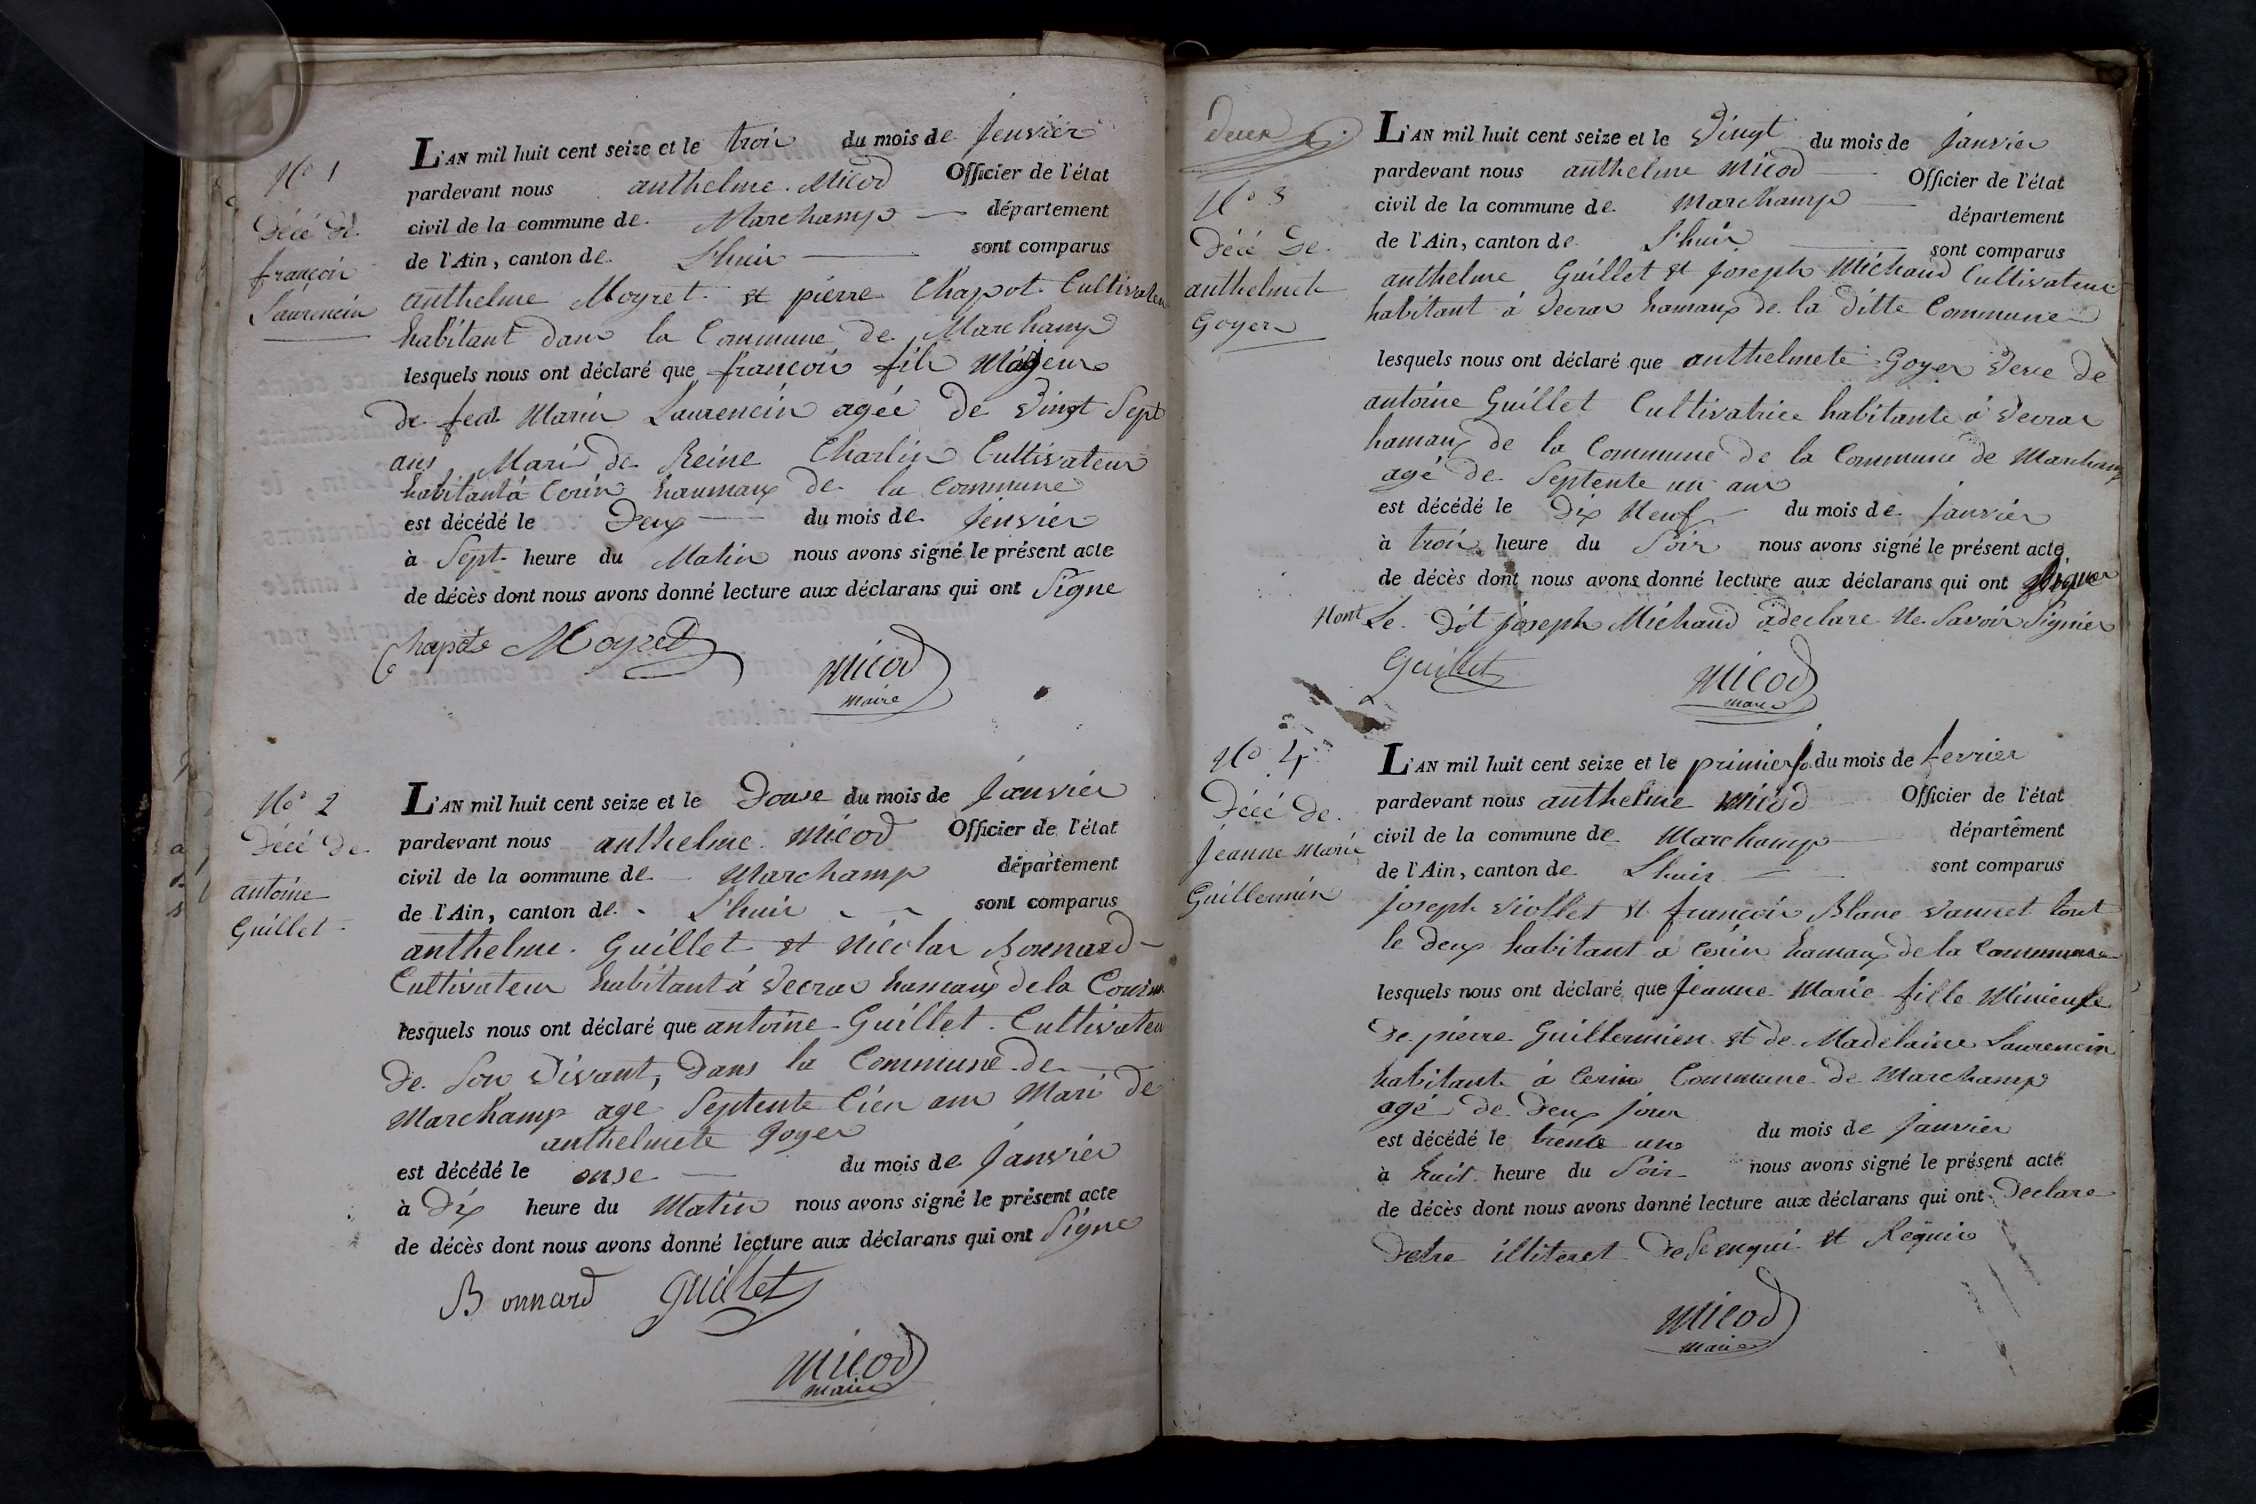 No 1
Décé de
françois
Laurencin
L'AN mil huit cent seize et le trois du mois de Jenvier
pardevant nous anthelme Micod Officier de l'état
civil de la commune de Marchamp département
de l'Ain, canton de L'huis sont comparus
anthelme Moyret et pierre Chapot Cultivateur
habitant dans la Commune de Marchamp
lesquels nous ont déclaré que françois fils Majeur
de feat Marin Laurencin agée de vingt Sept
ans Mari de Reine Charlin Cultivateur
habitant à Cerin haumaux de la Commune
est décédé le Deux du mois de Jenvier
à Sept heure du Matin nous avons signé le présent acte
de décès dont nous avons donné lecture aux déclarans qui ont Signe
Chapot Moyret
Micod
Maire
No 2
Décé de
antoine
Guillet
L'AN mil huit cent seize et le Douse du mois de Janvier
pardevant nous anthelme Micod Officier de l'état
civil de la commune de Marchamp département
de l'Ain, canton de L'huis sont comparus
anthelme Guillet et Nicolas Bonnard
Cultivateur habitant à vecras hameaux de la Comm
lesquels nous ont déclaré que antoine Guillet Cultivateu
De Son vivant, Dans la Commune de
Marchamp agé Septente Cien ans Mari de
anthelmete Goyer
est décédé le onse du mois de Janvier
à Dix heure du Matin nous avons signé le présent acte
de décès dont nous avons donné lecture aux déclarans qui ont Signe
Bonnard Guillet
Micod
Maire
Deux
No 3
Décé De
anthelmete
Goyer
L'AN mil huit cent seize et le Vingt du mois de Janvier
pardevant nous anthelme Micod Officier de l'état
civil de la commune de Marchamp département
de l'Ain, canton de L'huis sont comparus
anthelme Guillet et Joseph Michaud Cultivateur
habitant à vecras hamaux de la ditte Commune
lesquels nous ont déclaré que anthelmete Goyer veve de
antoine Guillet Cultivatrice habitante à vecras
hamaux de la Commune de la Commune de Marchamp
agé de Septente un ans
est décédé le Dix Neuf du mois de Janvier
à trois heure du Soir nous avons signé le présent acte
de décès dont nous avons donné lecture aux déclarans qui ont Signer
Nont Le Dit joseph Michaud a declare Ne Savoir Signier
Guillet
Micod
Maire
No 4
Décé De
Jeanne Marie
Guillermin
L'AN mil huit cent seize et le primier du mois de fevrier
pardevant nous anthelme Micod Officier de l'état
civil de la commune de Marchamp département
de l'Ain, canton de L'huis sont comparus
joseph Viollet et françois Blanc vannet tout
le deux habitant a Cerin hamaux de la Commune
lesquels nous ont déclaré que Jeanne Marie fille
De pierre Guillermien et de Madelaine Laurencin
habitante à Cerin Commune de Marchamp
agé de Deux jour
est décédé le trente un du mois de Janvier
à huit heure du Soir nous avons signé le présent acte
de décès dont nous avons donné lecture aux déclarans qui ont Declare
Detre illiteret De Se enqui et Requis
Micod
Maire